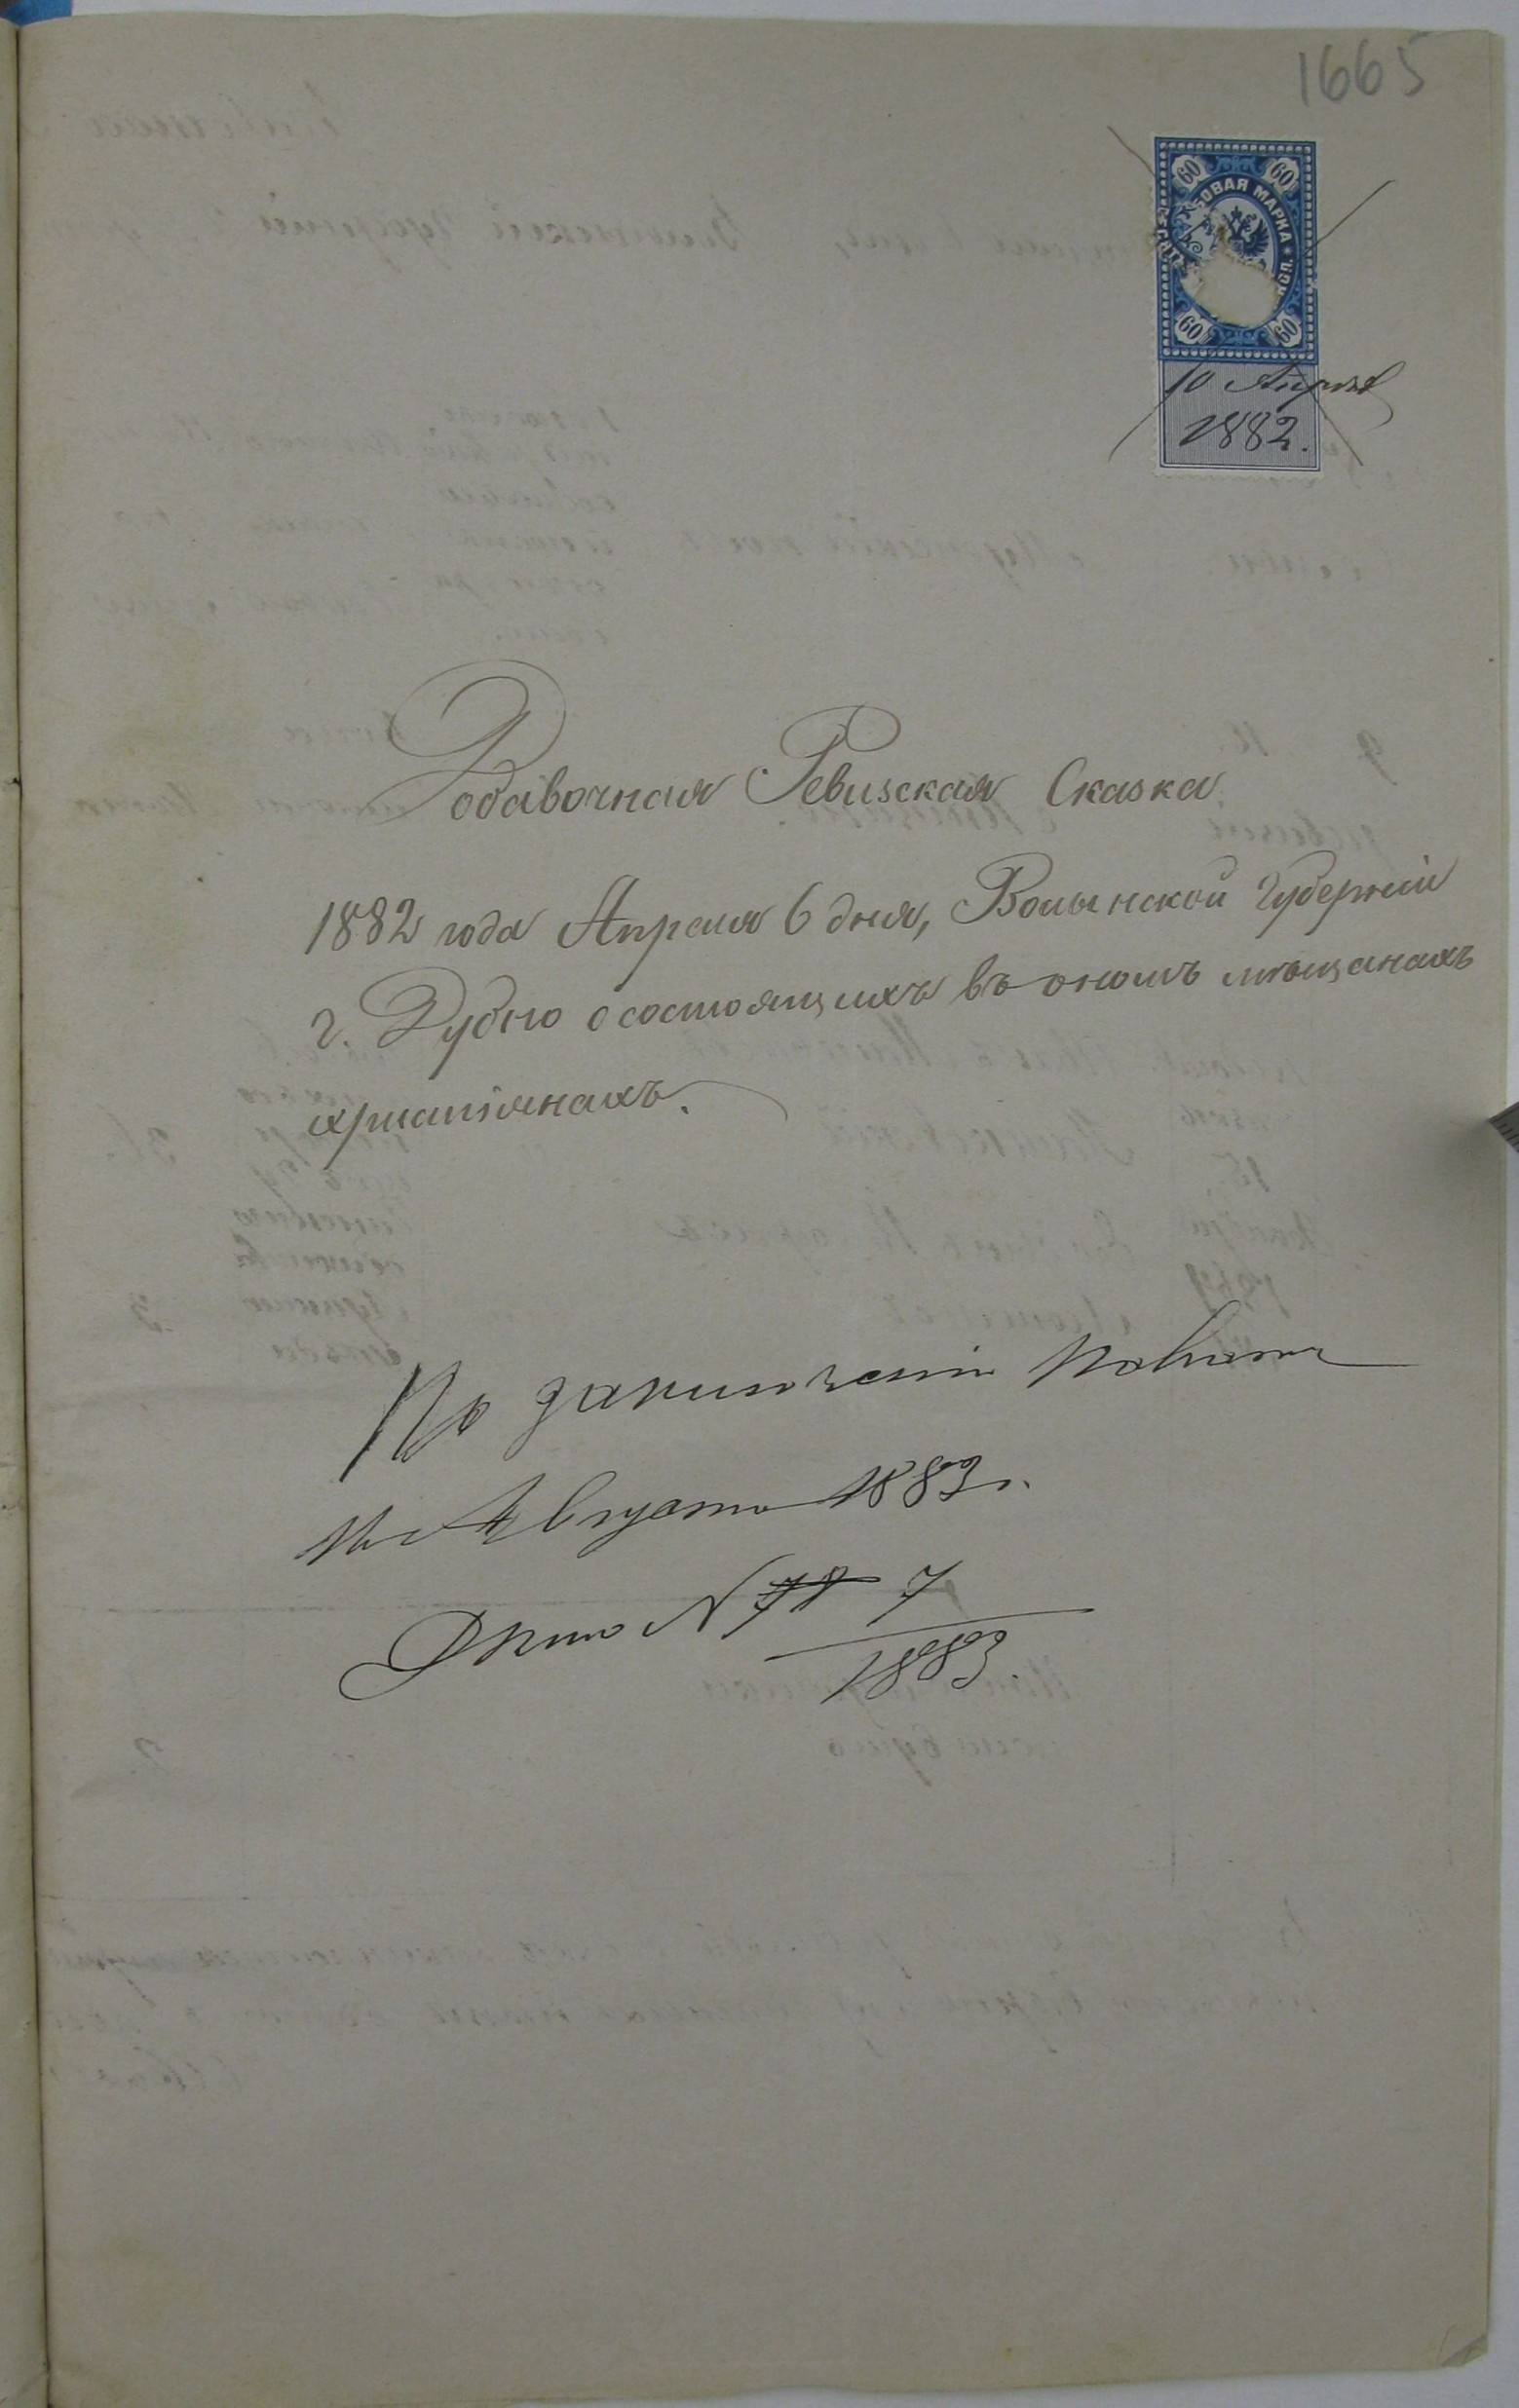 1665
60 60
ГЕРБОВАЯ МАРКА КОП
60 60
10 Апрѣля
1882.
Добавочная Ревизская Сказка
1882 года Апреля 6 дня, Волынской Губерніи
г. Дубно о состоящихъ въ ономъ мѣщанахъ
христіянахъ.
По заключенію
Августа 1883 г.
N 78 7
1883.